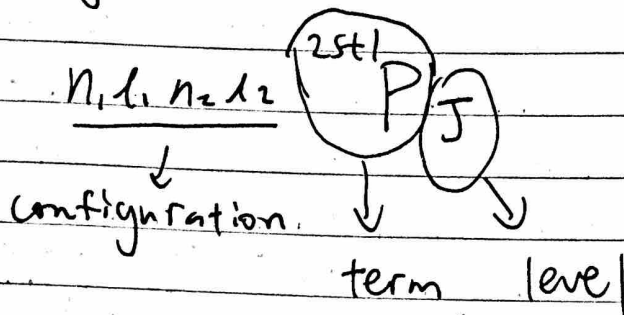 n₁ l₁ n₂ l₂ ²ˢ⁺¹P_J
configuration.
term level